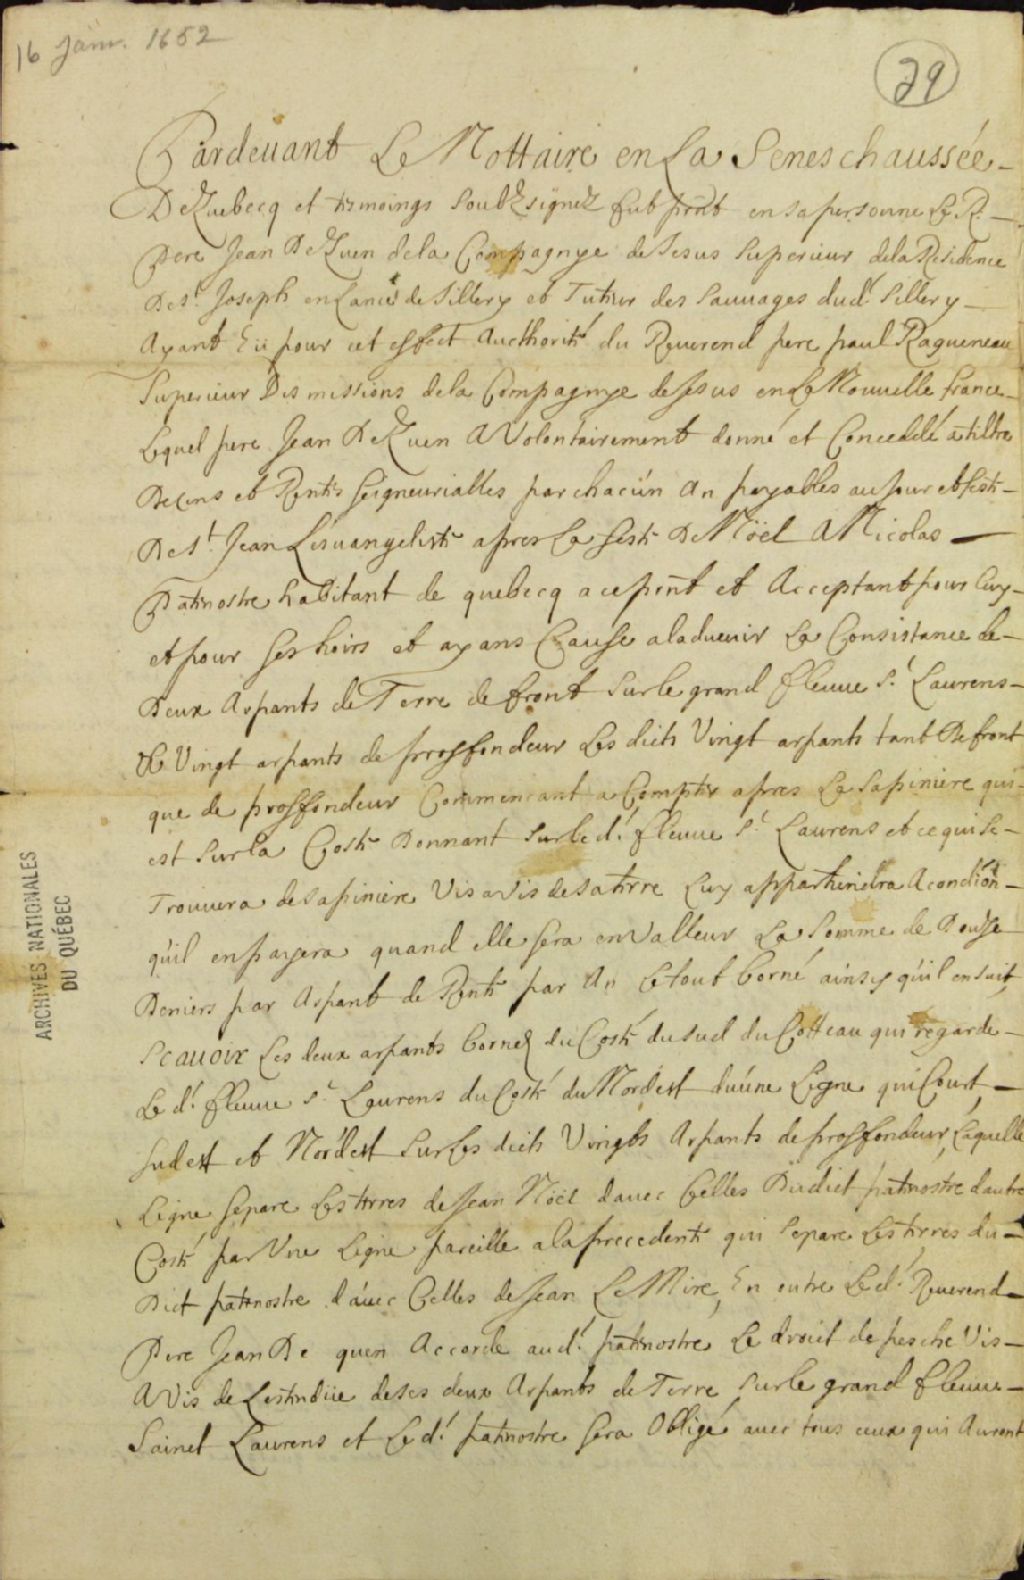 16 Janv. 1652
29
Pardeuant Le Nottaire en La Seneschaussée
DeQuebecq et temoings soubzsignez fut pñt en sa personne Le R.
Pere Jean DeQuen de la Compagnye de Jesus Superieur de la Residence
De St. Joseph en Lance de Sillery et Tuteur des Sauuages dud. Sillery
Ayant Eü pour cet effect Aucthorité du Reuerend pere paul Ragueneau
Superieur Des missions de la Compagnye de Jesus en La Nouuelle france
Lequel pere Jean DeQuen A Volontairement donné et Conceddé a tiltre
De cens et Rentes seigneurialles par chacun An payables au jour et feste
De St. Jean Leuangeliste apres La feste De Nöel A Nicolas
Patenostre habitant de quebecq a ce pñt et Acceptant pour luy
et pour ses hoirs et ayans Cause aladuenir La Consistance de
Deux Arpants de Terre de front sur le grand fleuue St. Laurens
& Vingt arpants de proffondeur Les dicts Vingt arpants tant De front
que de proffondeur Commencant a Compter apres La sapiniere qui
est sur la Coste Donnant sur le d. fleuue St. Laurens et ce qui se
Trouuera de sapiniere Vis a Vis de sa terre Luy appartiendra A condiõn
quil en payera quand elle sera en valleur La somme de Douse
Deniers par Arpant de Rente par An Le tout borné ainsy quil en suit
Scauoir Les deux arpants bornez du Costé du sud du Cotteau qui regarde
Le d. fleuue St. Laurens du Costé du Nordest d'úne Ligne qui Court
sudest et Nordest sur Les dicts Vingts Arpants de proffondeur, Laquelle
Ligne separe Les terres de Jean Nöel dauec Celles Dudict patenostre dautre
Costé par Vne Ligne pareille a la precedente qui separe Les terres du
Dict patenostre dauec Celles de Jean Le Mire, En outre Le d. Reuerend
Pere Jean De quen Accorde au d. patenostre Le droict de pesche Vis
A Vis de Lestendüe de ses deux Arpants de Terre sur le grand fleuue
Sainct Laurens et Le d. patenostre sera Obligé auec tous ceux qui Auront
ARCHIVES NATIONALES
DU QUÉBEC